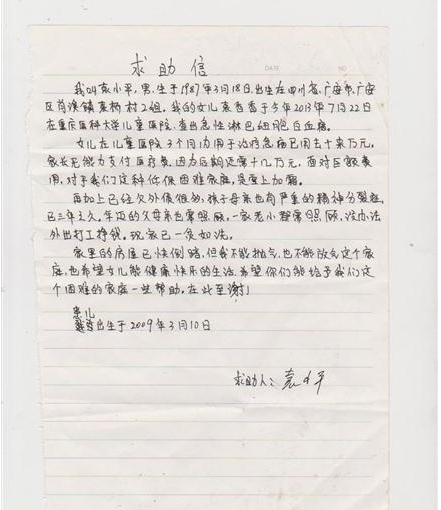 求助信
DATE NO
我叫袁小平,男,生于1987年3月18日,出生在四川省、广安市、广安
区肖溪镇素桥村2组。我的女儿袁香香于今年2013年7月22日
在重庆医科大学儿童医院,查出急性淋巴细胞白血病。
女儿在儿童医院3个月内用于治病已用去十来万元,
家长无能力支付医疗费。因为后期还需十几万元,面对巨额费
用,对于我们这种低保困难家庭,是雪上加霜。
再加上已经欠外债很多,孩子母亲也有严重的精神分裂症,
已三年之久。年迈的父母亲也需照顾,一家老小都需照顾,没办法
外出打工挣钱。现家已一贫如洗。
家里的房屋已快倒塌,但我不能抛弃,也不能放弃这个家
庭,也希望女儿能健康快乐的生活。希望你们能给予我们这
个困难的家庭一些帮助。在此至谢!
患儿
出生于2009年3月10日
求助人:袁小平